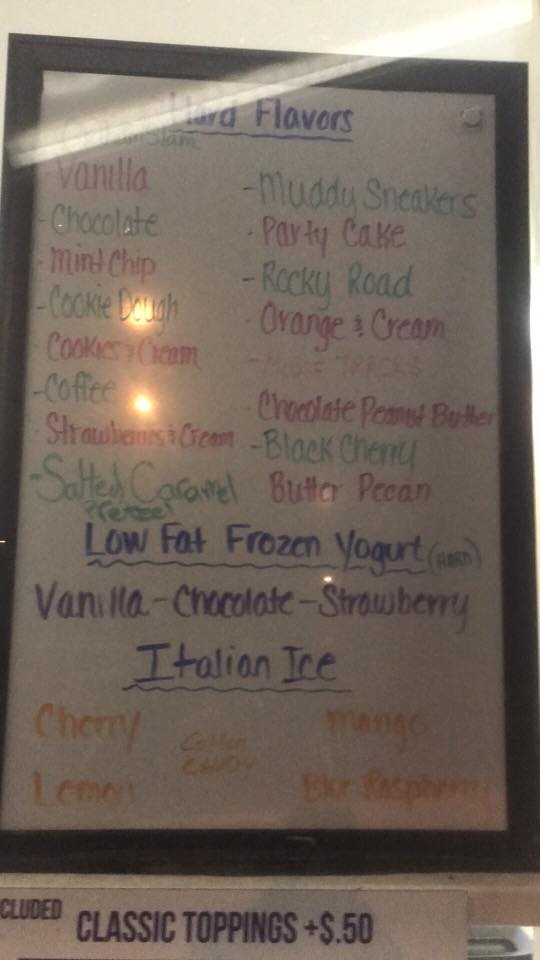 Hard Flavors
Vanilla
- Chocolate
- Mint Chip
- Cookie Dough
- Cookies & Cream
- Coffee
- Strawberries & Cream
- Salted Caramel
Pretzel
- Muddy Sneakers
- Party Cake
- Rocky Road
- Orange & Cream
- Moose TRACKS
Chocolate Peanut Butter
- Black Cherry
Butter Pecan
Low Fat Frozen Yogurt (HARD)
Vanilla - Chocolate - Strawberry
Italian Ice
Cherry
Cotton
CANDY
mango
Lemon
Blue Raspberry
CLUDED CLASSIC TOPPINGS +$.50